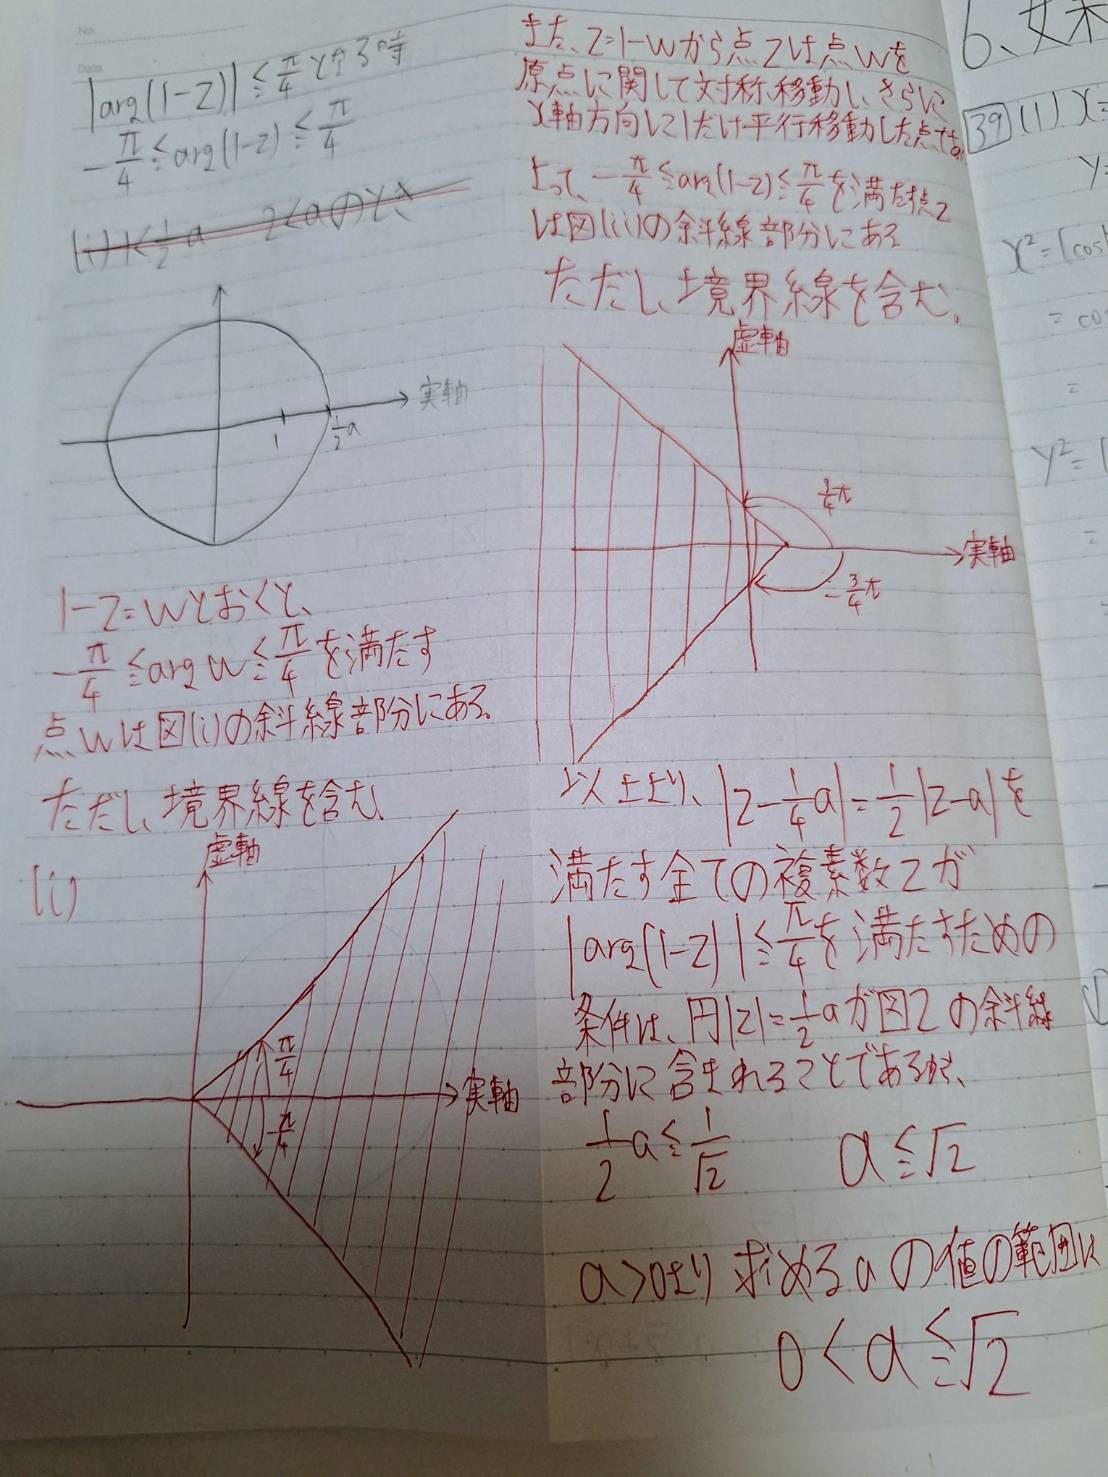 No.
Date
|arg(1-z)|≦π/4とする時
-π/4≦arg(1-z)≦π/4
(i) 1<1/2a 2<aのとき
実軸
1
1/2a
1-z=wとおくと、
-π/4≦arg w≦π/4を満たす
点wは図(i)の斜線部分にある
ただし、境界線を含む
(i)
虚軸
π/4
実軸
-π/4
また、z=1-wから点zは点wを
原点に関して対称移動し、さらに
x軸方向に1だけ平行移動した点である
よって、-π/4≦arg(1-z)≦π/4を満たす点z
は図(ii)の斜線部分にある
ただし、境界線を含む。
虚軸
3/4π
実軸
-3/4π
以上より、|z-1/4a|=1/2|z-a|を
満たす全ての複素数zが
|arg(1-z)|≦π/4を満たすための
条件は、円|z|=1/2aが図2の斜線
部分に含まれることであるから、
1/2a≦1/√2 a≦√2
a>0より求めるaの値の範囲は
0<a≦√2
6、
39 (1) x=
y=
x²=(cos
= cos
=
y²=(
=